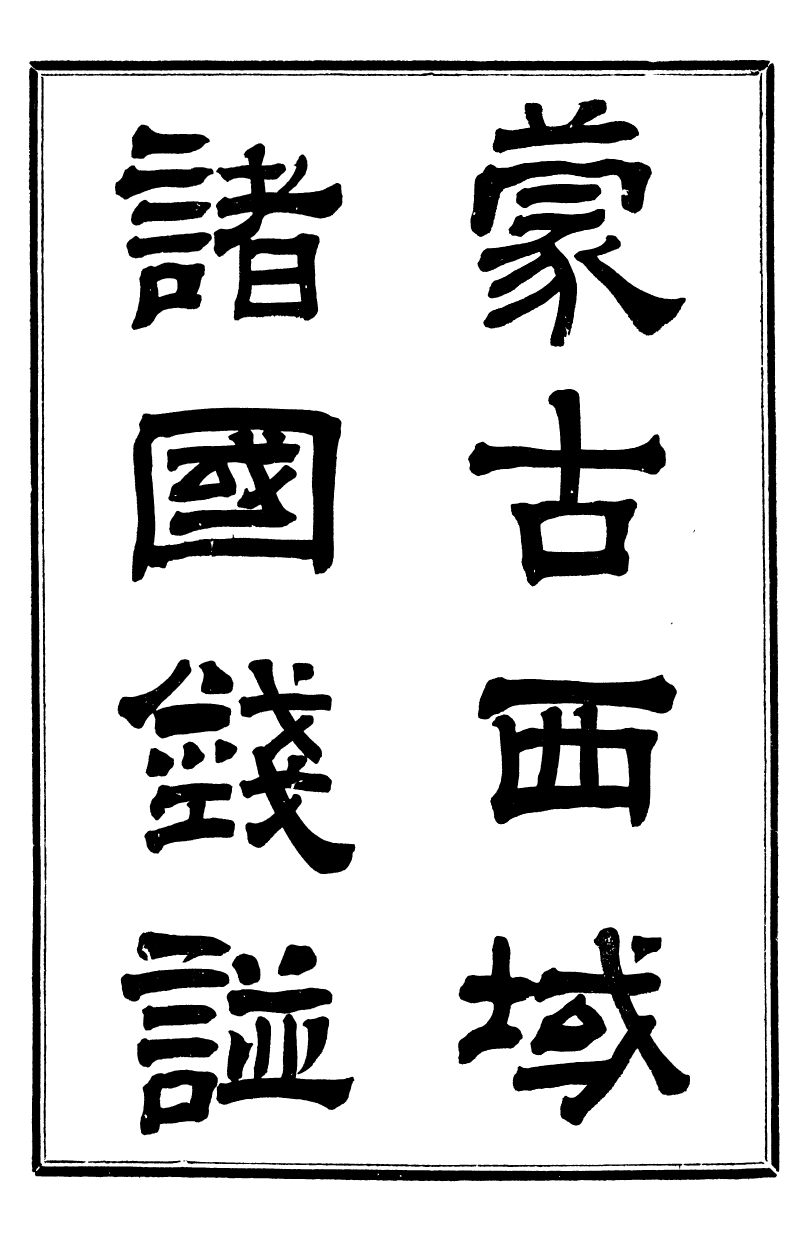 蒙古西域
諸國錢譜